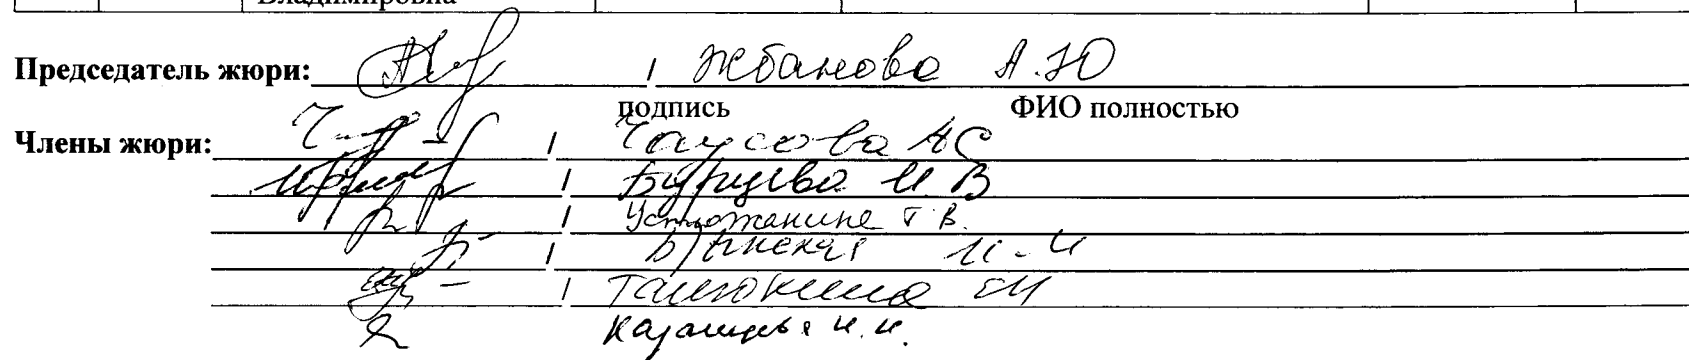 Владимировна
Председатель жюри: / Жбанова А.Ю
подпись ФИО полностью
Члены жюри: / Чаусова АС
/ Бурцева И В
/ Устюжанина Т.В.
/ И.И
/ Танюкина ЕИ
И.И.